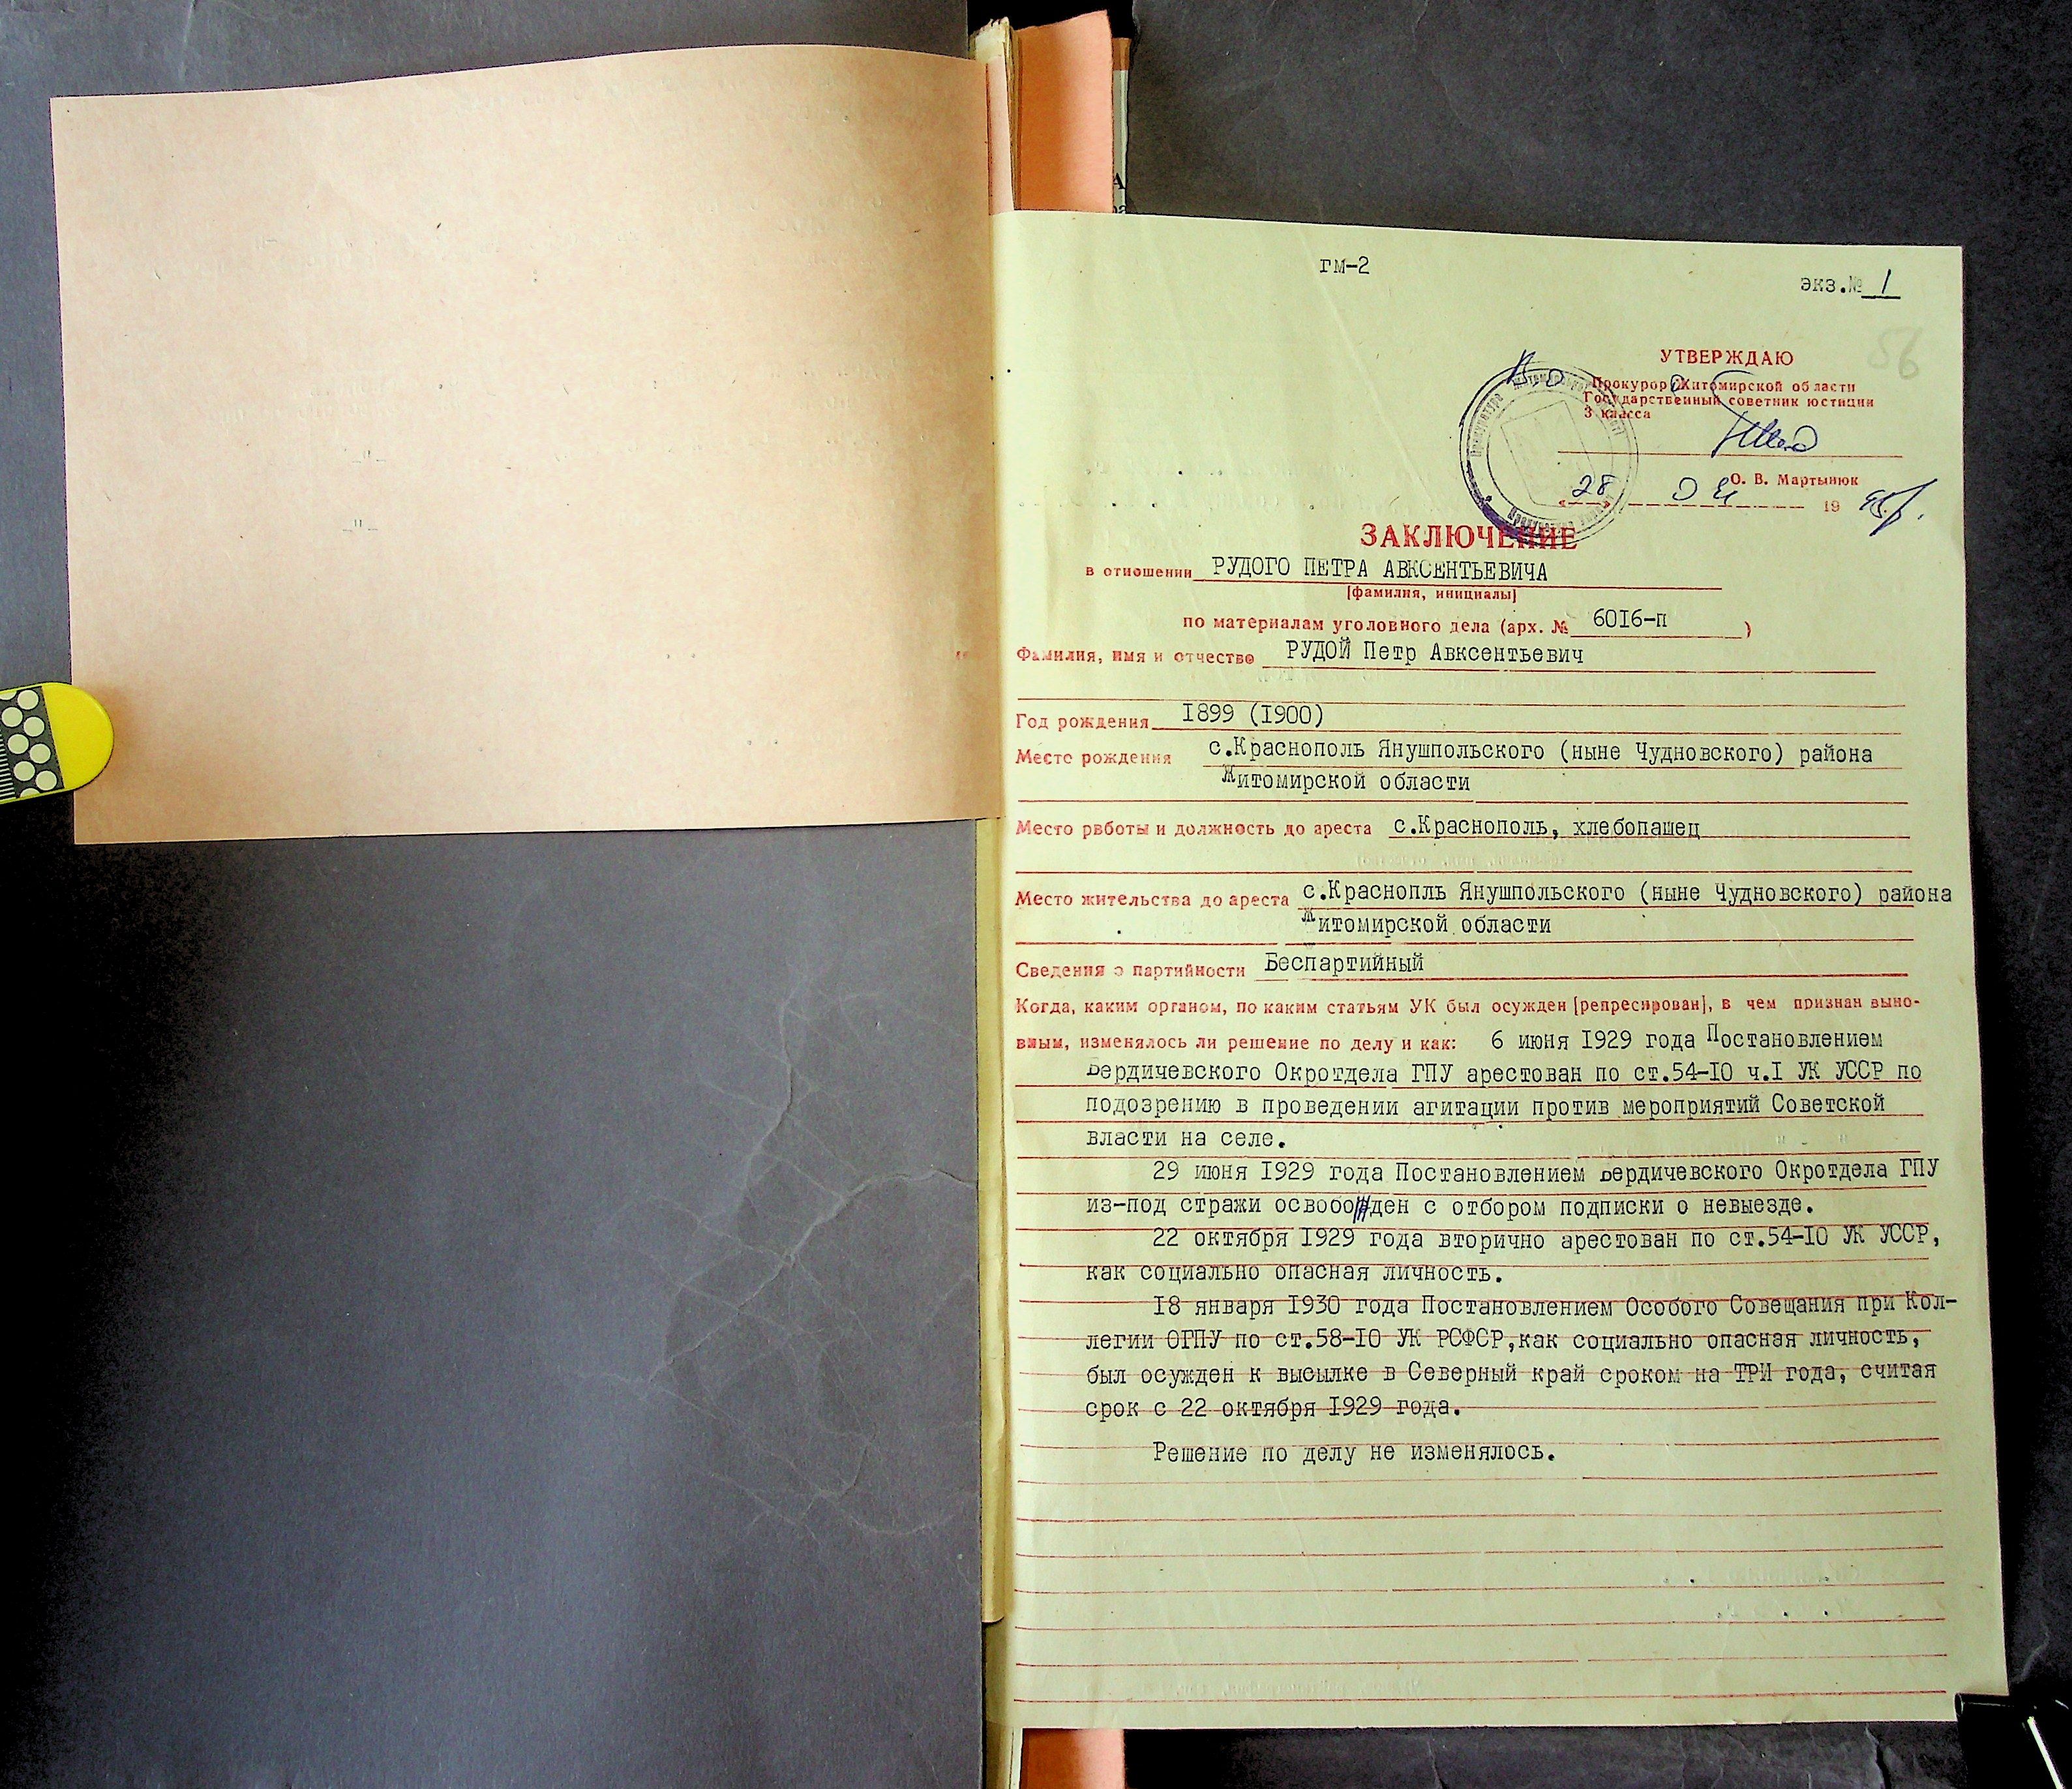 гм-2
экз.№ 1
56
УТВЕРЖДАЮ
Прокурор Житомирской области
Государственный советник юстиции
3 класса
О. В. Мартынюк
«28» 04 19
ЗАКЛЮЧЕНИЕ
в отношении РУДОГО ПЕТРА АВКСЕНТЬЕВИЧА
[фамилия, инициалы]
по материалам уголовного дела (арх. № 6016-п )
Фамилия, имя и отчество РУДОЙ Петр Авксентьевич
Год рождения 1899 (1900)
Место рождения с.Краснополь Янушпольского (ныне Чудновского) района
Житомирской области
Место рвботы и должность до ареста с.Краснополь, хлебопашец
Место жительства до ареста с.Краснопль Янушпольского (ныне Чудновского) района
Житомирской области
Сведения о партийности Беспартийный
Когда, каким органом, по каким статьям УК был осужден [репресирован], в чем признан выно-
вным, изменялось ли решение по делу и как: 6 июня 1929 года Постановлением
Бердичевского Окротдела ГПУ арестован по ст.54-10 ч.1 УК УССР по
подозрению в проведении агитации против мероприятий Советской
власти на селе.
29 июня 1929 года Постановлением Бердичевского Окротдела ГПУ
из-под стражи освобожден с отбором подписки о невыезде.
22 октября 1929 года вторично арестован по ст.54-10 УК УССР,
как социально опасная личность.
18 января 1930 года Постановлением Особого Совещания при Кол-
легии ОГПУ по ст.58-10 УК РСФСР,как социально опасная личность,
был осужден к высылке в Северный край сроком на ТРИ года, считая
срок с 22 октября 1929 года.
Решение по делу не изменялось.